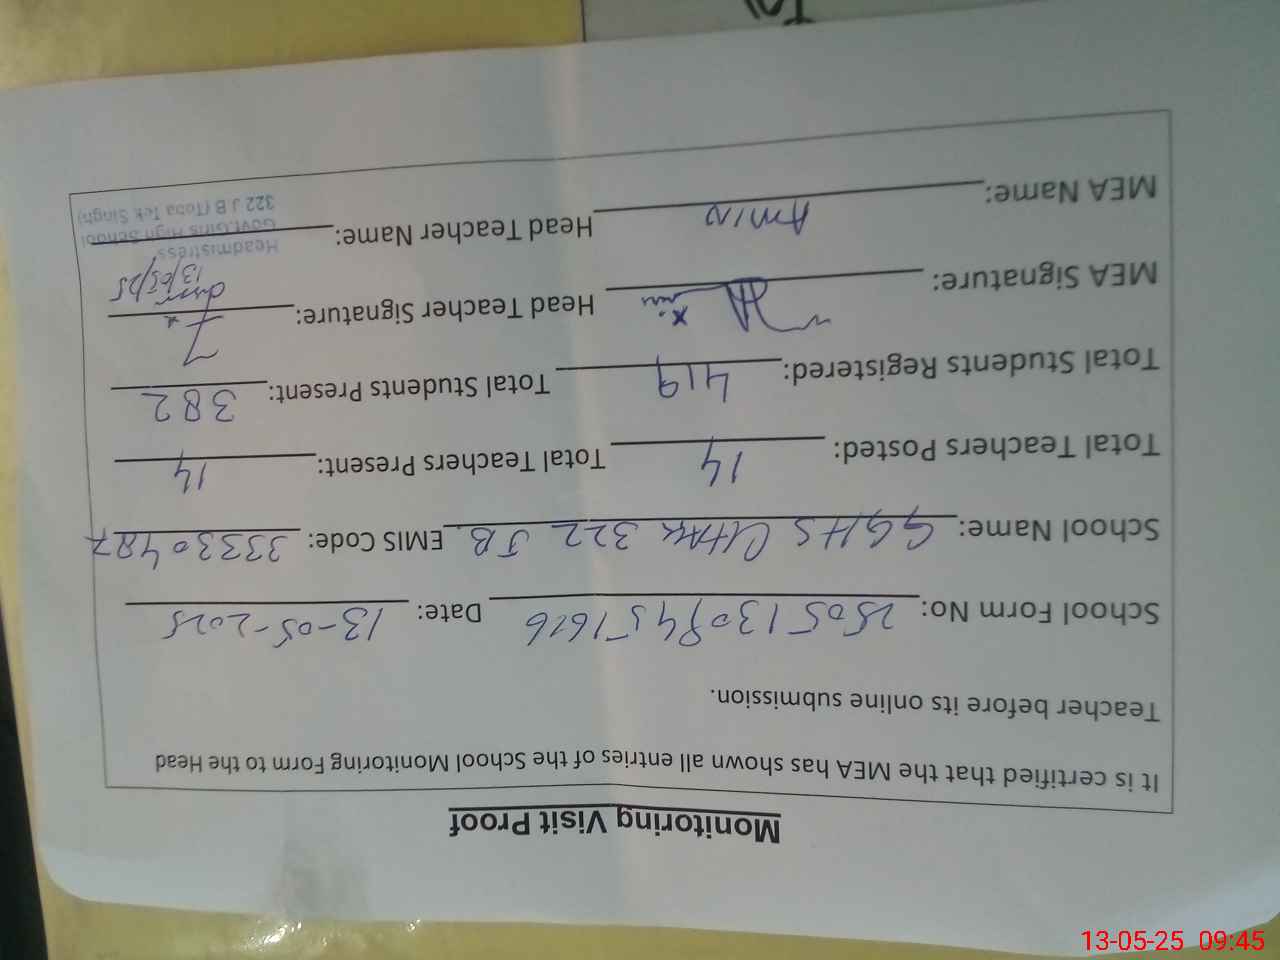 Monitoring Visit Proof
It is certified that the MEA has shown all entries of the School Monitoring Form to the Head
Teacher before its online submission.
School Form No: 250513094516 Date: 13-05-2025
School Name: GGHS CHAK 322 JB EMIS Code: 33330487
Total Teachers Posted: 14 Total Teachers Present: 14
Total Students Registered: 419 Total Students Present: 382
MEA Signature: Head Teacher Signature:
13/05/25
MEA Name: AMIN Head Teacher Name:
Headmistress
Govt.Girls High School
322 J B (Toba Tek Singh)
13-05-25 09:45